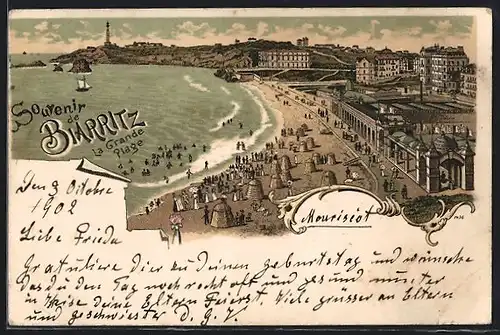 Souvenir
de
Biarritz
La Grande
Plage
Mouriscot
Den 3 Octobre
1902
Liebe Frieda
Gratudiere Dier zu Deinen geburtstag und wünsche
das du den Tag noch recht oft und gesund munter
in Kreise deine Eltern Feierst. Viele grüsser an Eltern
und geschwiester D. G. V.